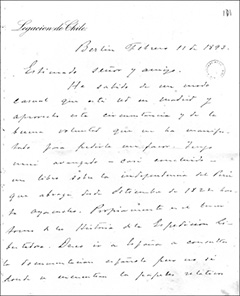 Legacion de Chile.
Berlin Febrero 11 de 1893.
Estimado señor y amigo.
Ha sabido de un modo
casual que está Ud en Madrid y
aprovecho esta circunstancia y de la
buena voluntad que me ha manifes-
tado para pedirle un favor. Tengo
muy avanzado o casi concluido
un libro sobre la independencia del Perú
que abraza desde Setiembre de 1820 hasta
Ayacucho. Propiamente es el
de la Historia de la Expedicion Li-
bertadora. Deseo ir a España a consultar
la documentacion española pero no sé
donde se encuentran los papeles relativos